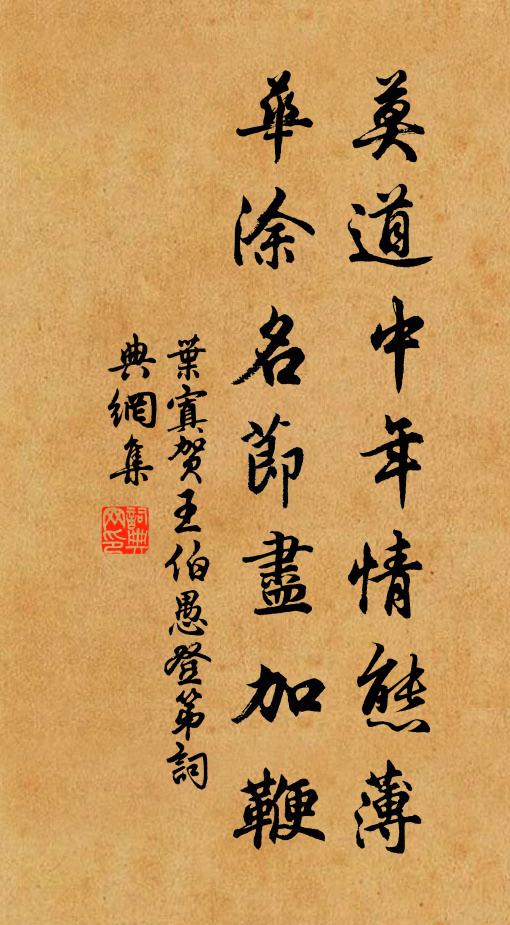 莫道中年情態薄
華涂名節盡加鞭
葉寘賀王伯愚登第詞
典網集
詞典網印